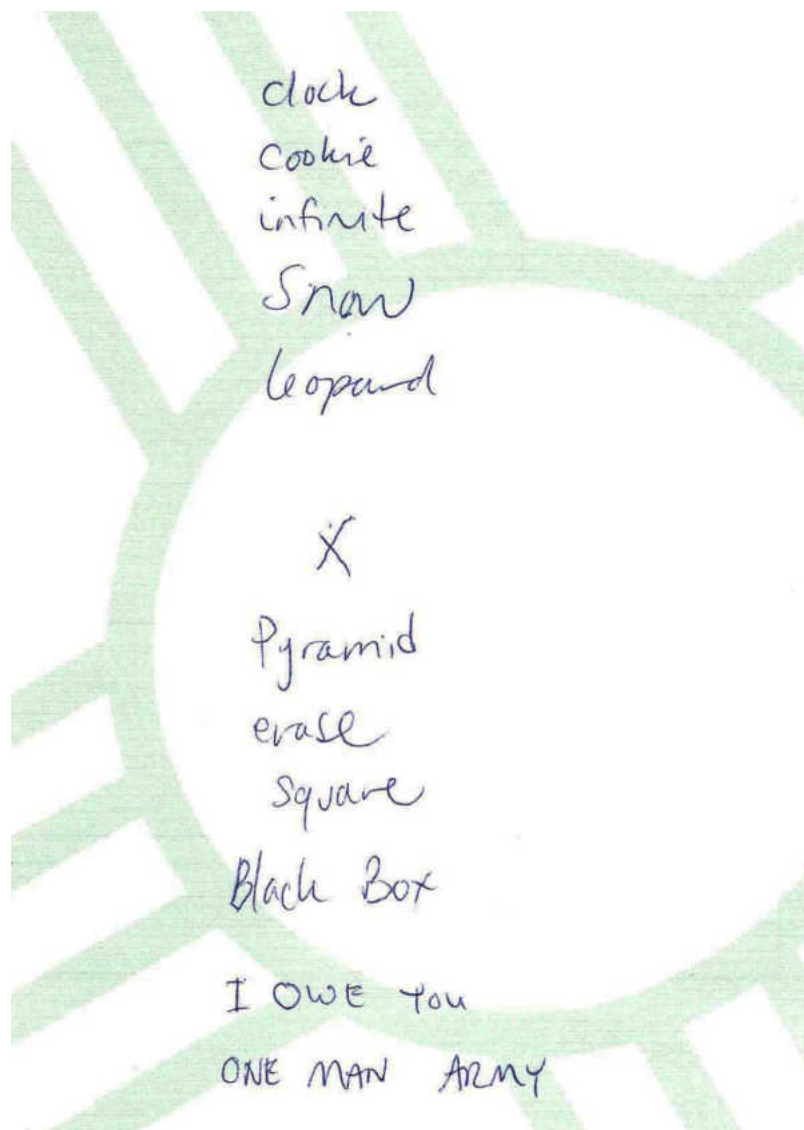 clock
cookie
infinite
Snow
leopard
X
Pyramid
erase
square
Black Box
I OWE You
ONE MAN ARMY